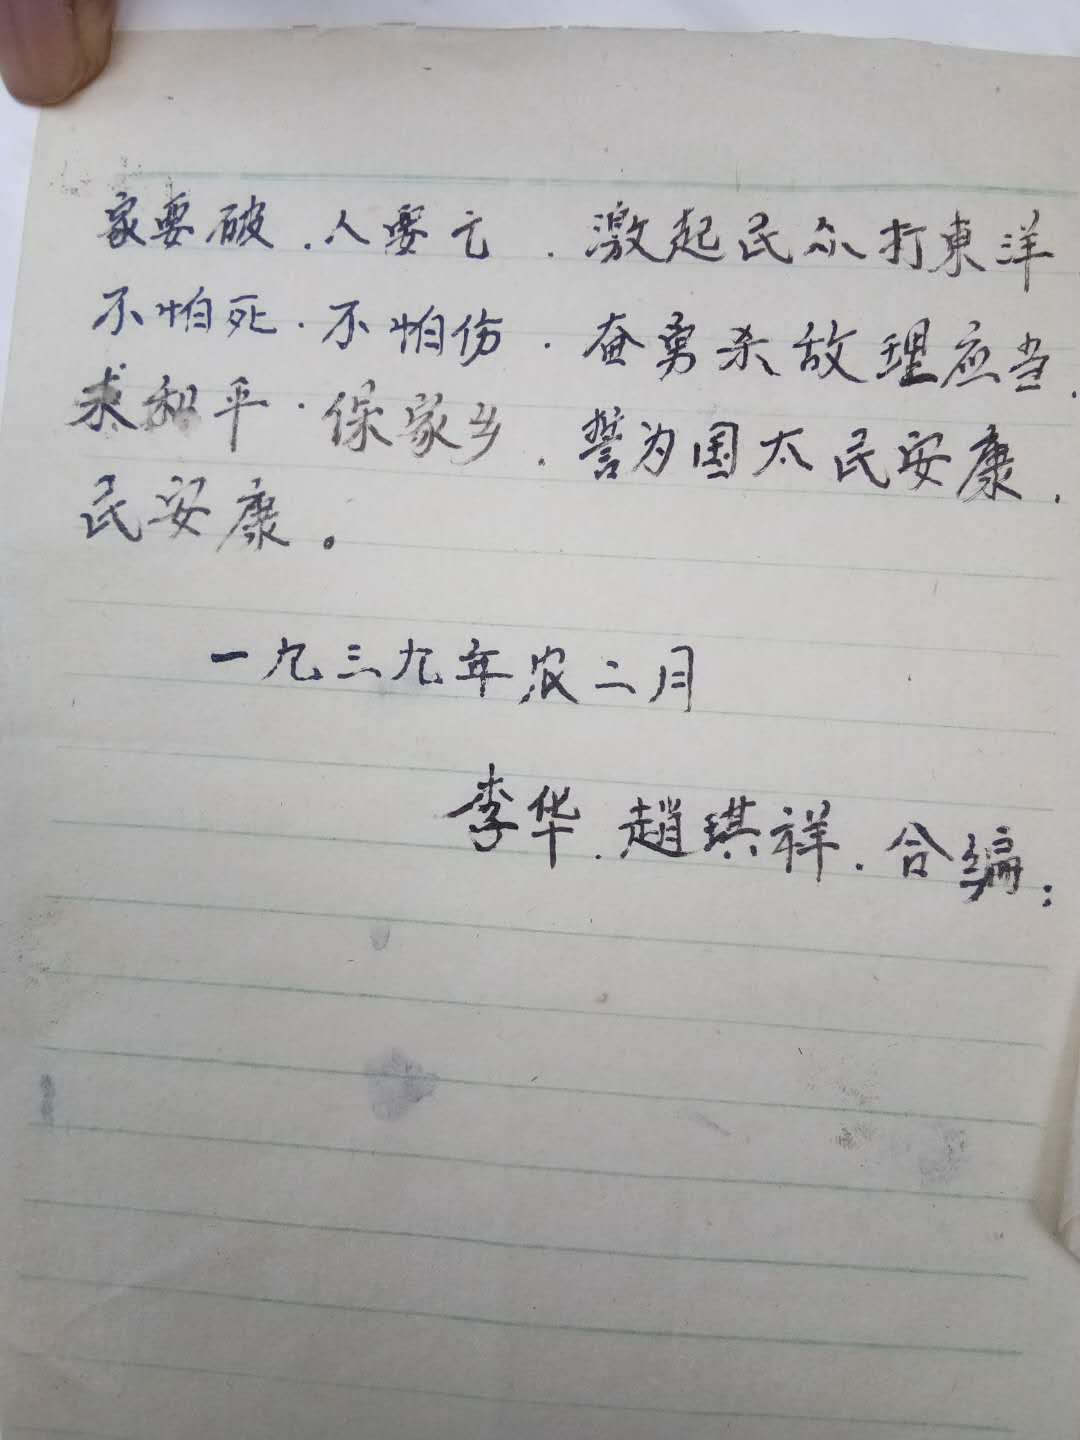 家要破．人要亡．激起民众打東洋
不怕死．不怕伤．奋勇杀敌理应当．
求和平．保家乡．誓为国太民安康．
民安康。
一九三九年农二月
李华．趙琪祥．合编：